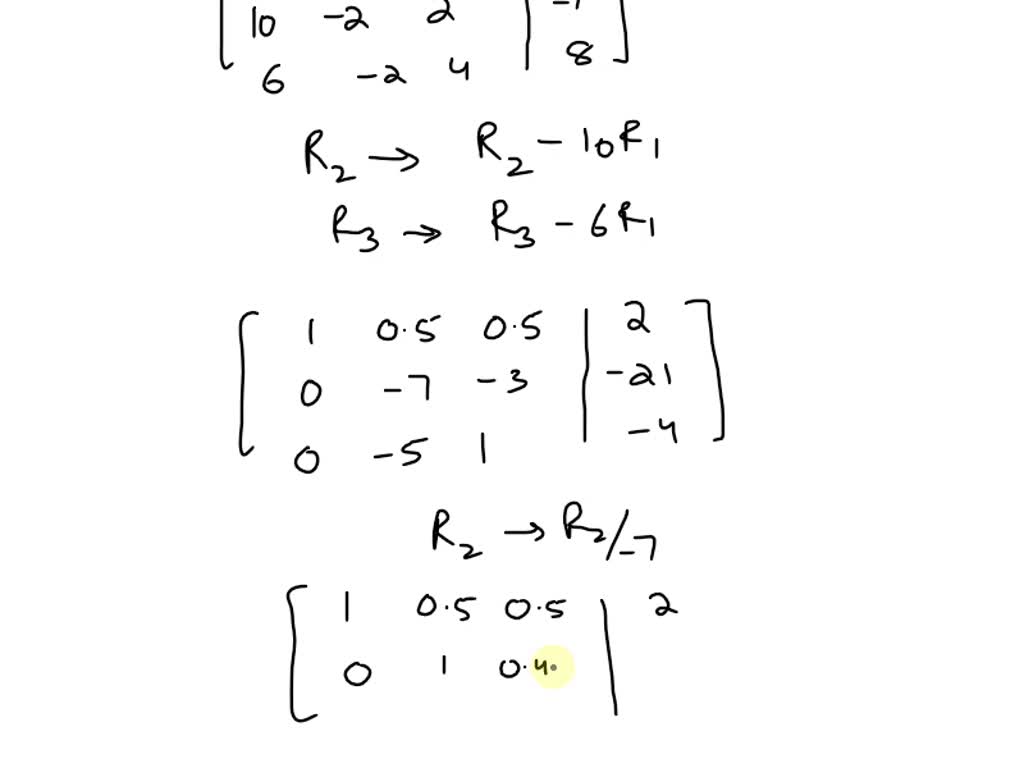 10 -2 2 | -1
6 -2 4 | 8
R₂ → R₂ - 10R₁
R₃ → R₃ - 6R₁
1 0.5 0.5 | 2
0 -7 -3 | -21
0 -5 1 | -4
R₂ → R₂/-7
1 0.5 0.5 | 2
0 1 0.4